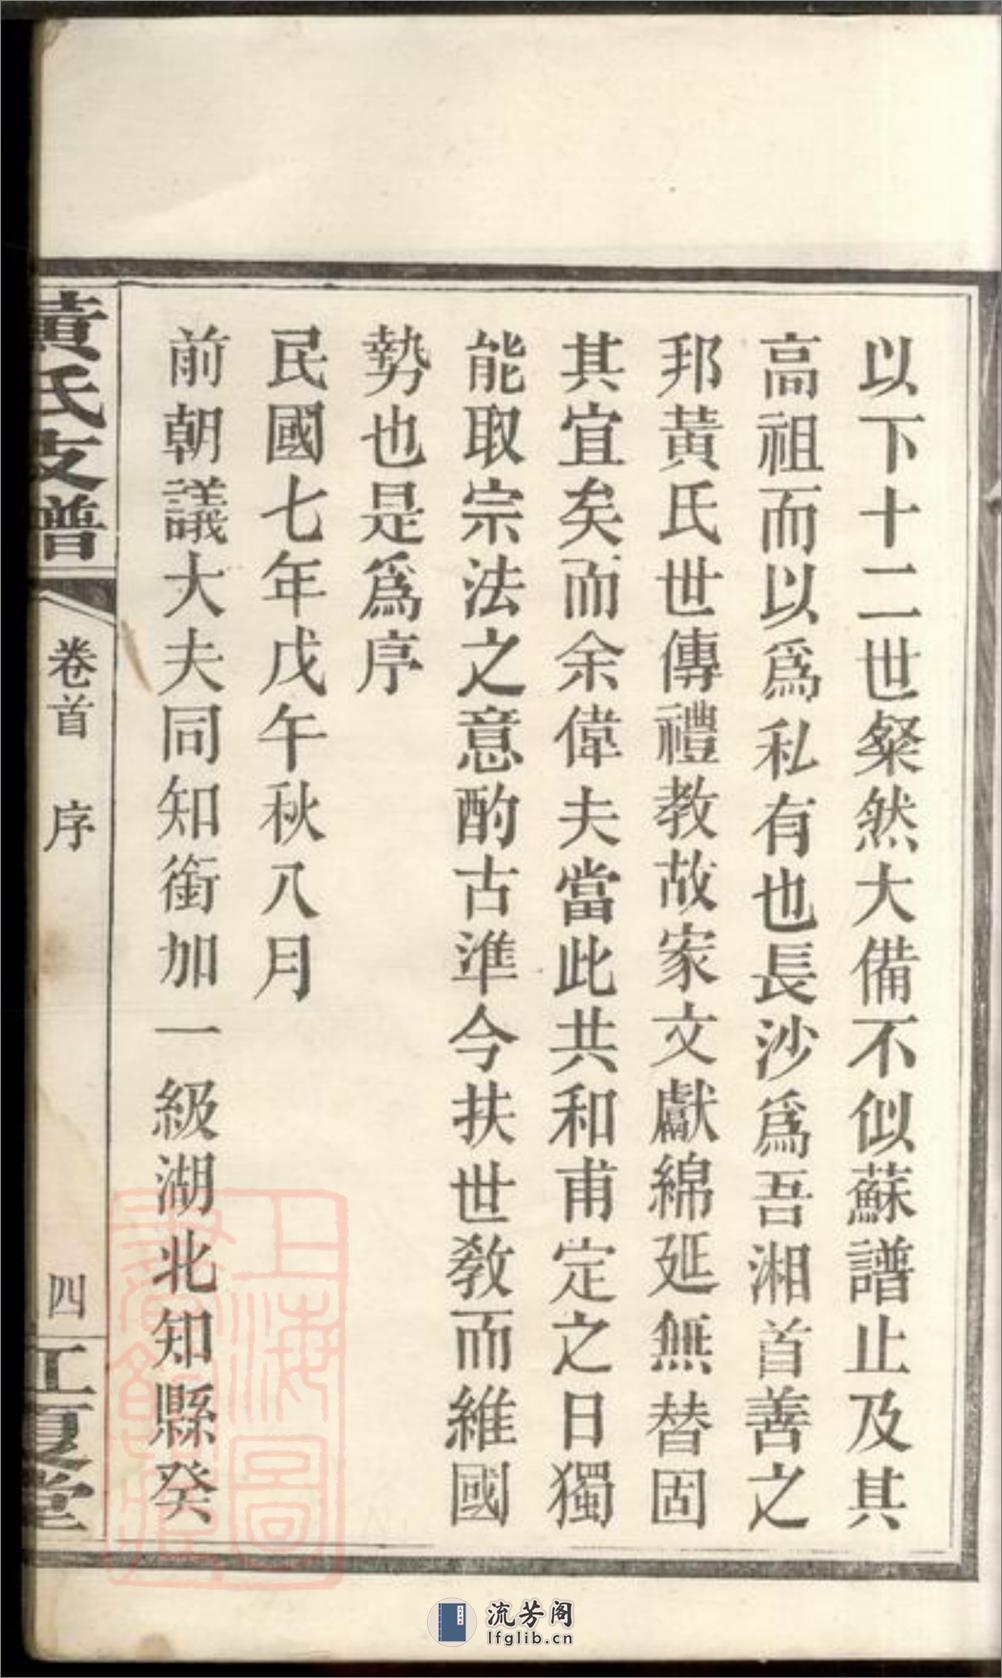 以下十二世粲然大備不似蘇譜止及其
高祖而以爲私有也長沙爲吾湘首善之
邦黃氏世傳禮教故家文獻綿延無替固
其宜矣而余偉夫當此共和甫定之日獨
能取宗法之意酌古準今扶世敎而維國
勢也是爲序
民國七年戊午秋八月
前朝議大夫同知銜加一級湖北知縣癸
黃氏支譜
卷首 序
四
江夏堂
上海圖
書館藏
流芳阁
lfglib.cn